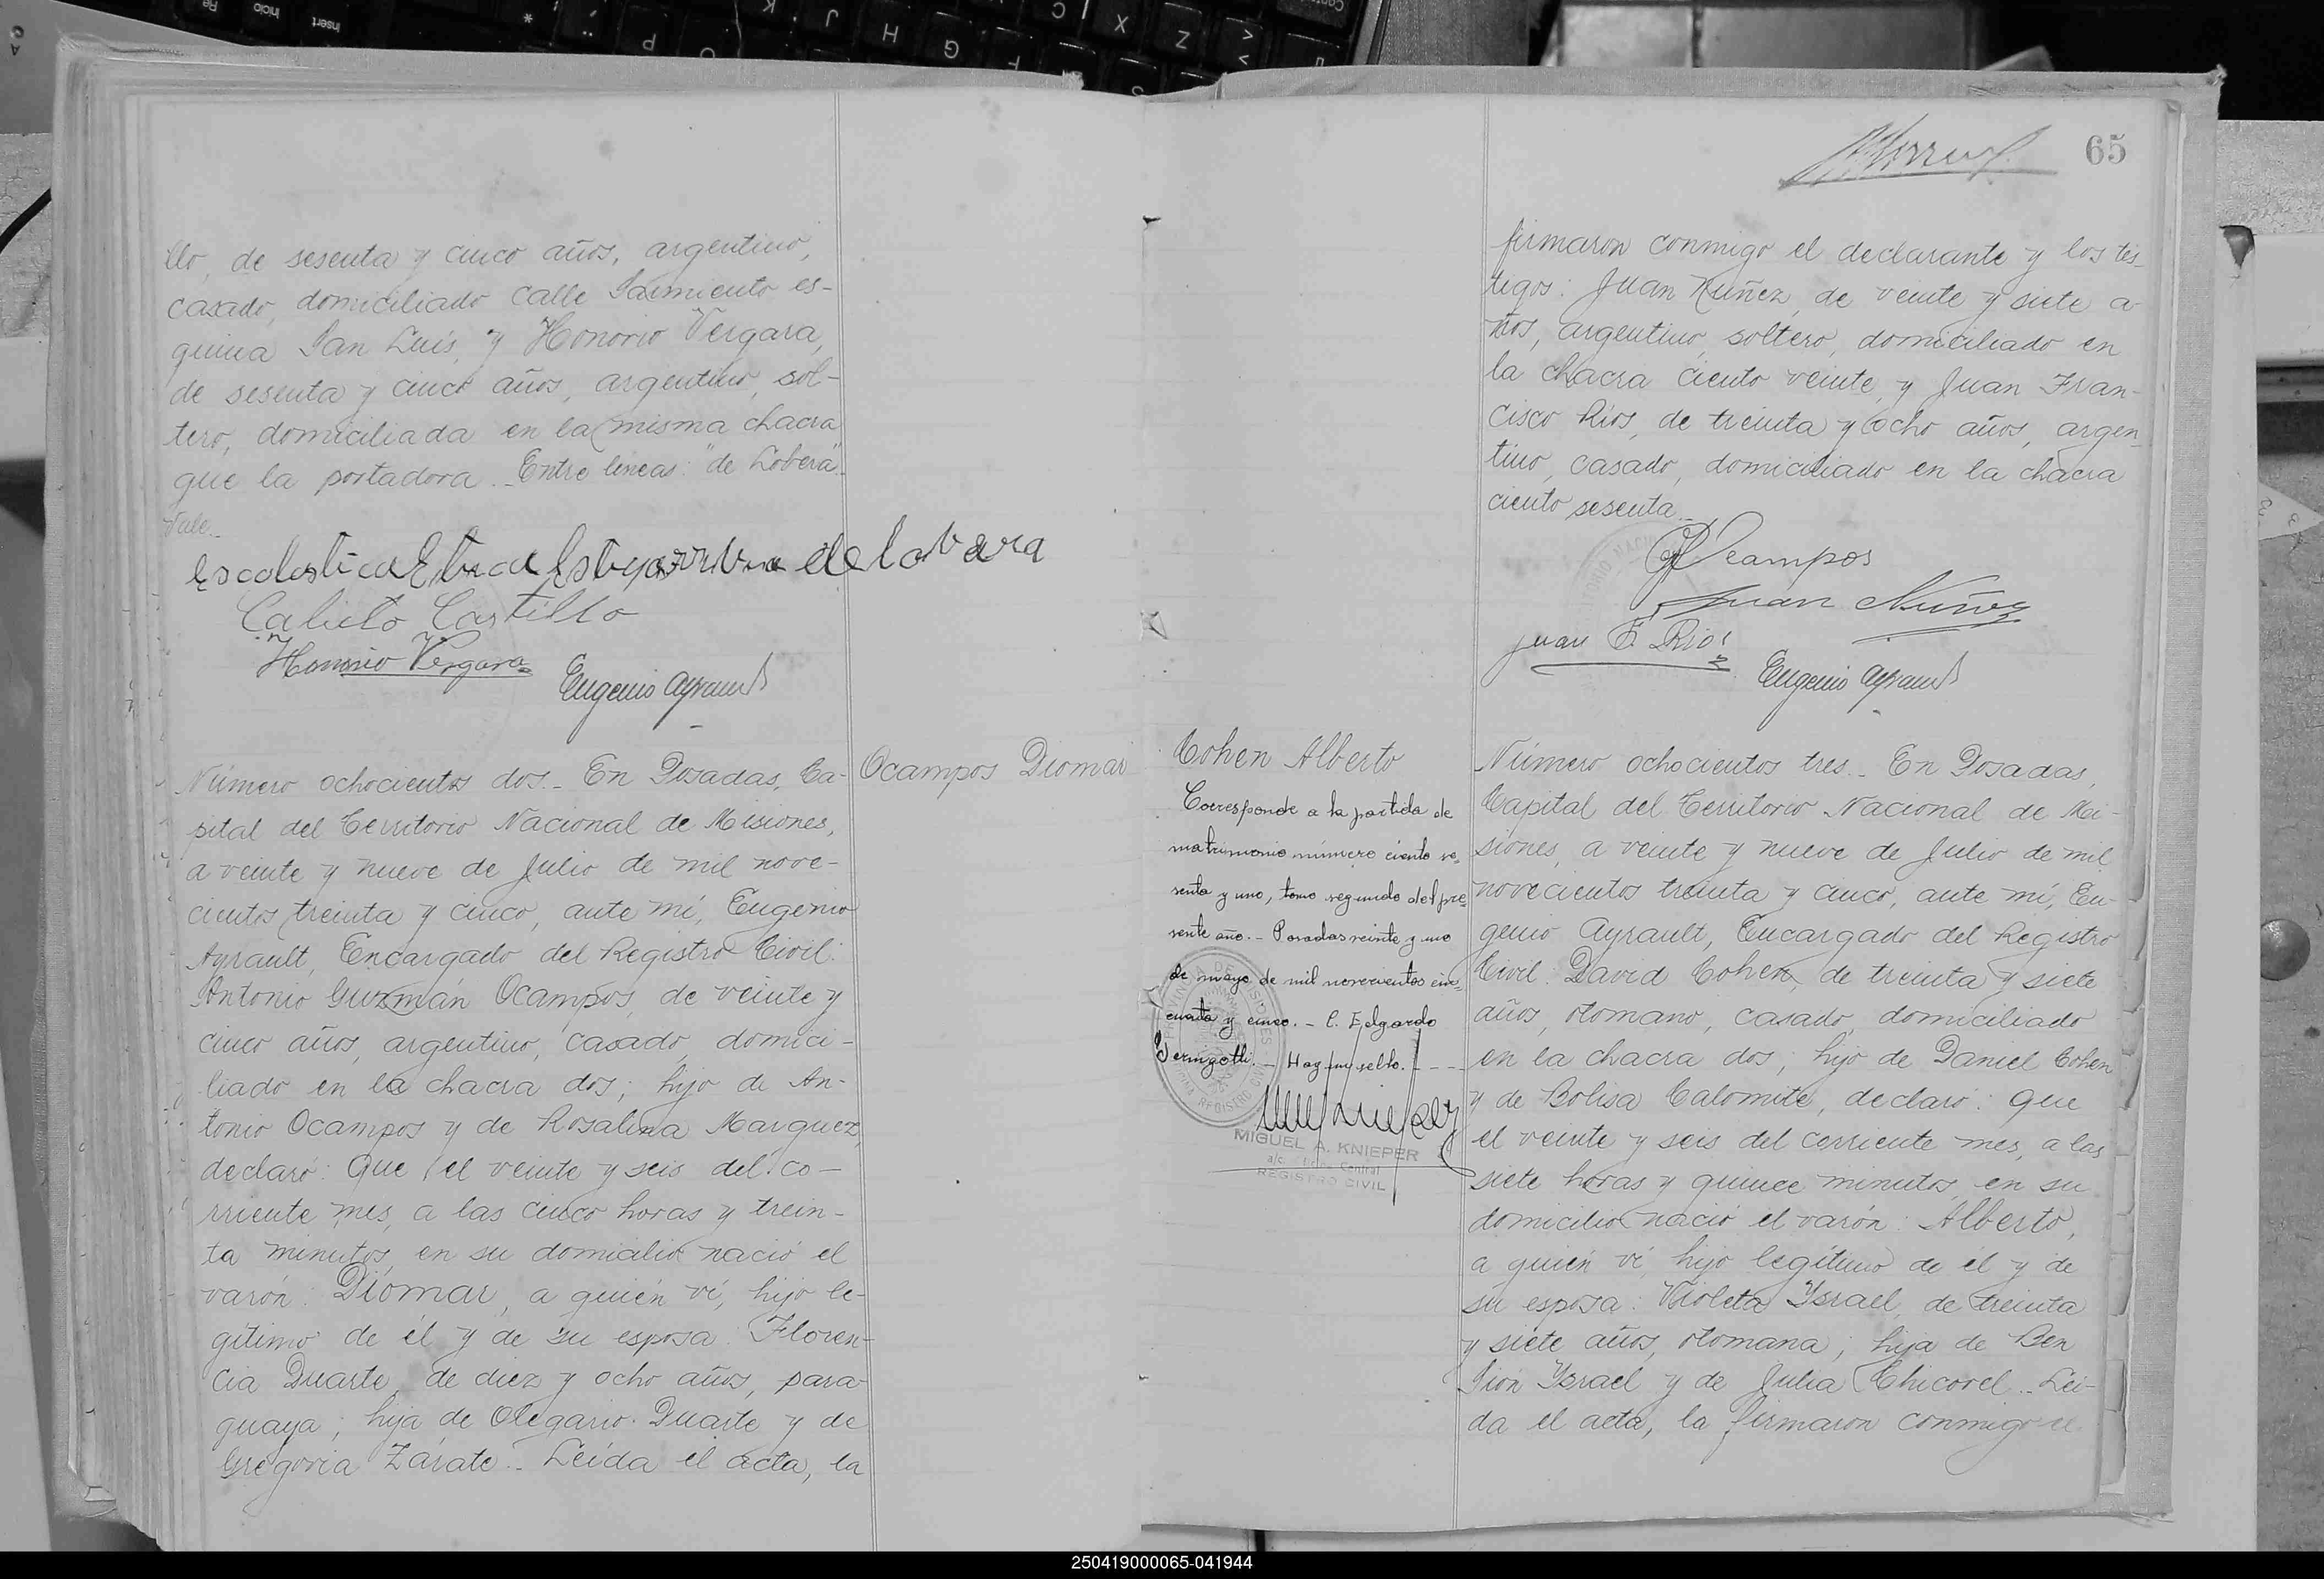 llo, de sesenta y cinco años, argentino,
casado, domiciliado calle Sarmiento es-
quina San Luis, y Honorio Vergara,
de sesenta y cinco años, argentino, sol-
tero, domiciliada en la misma chacra
que la portadora._ Entre líneas: "de Lobera".
Vale._
Calicto Castillo
Honorio Vergara
Eugenio Ayrault
Ocampos Diomar
Número ochocientos dos._ En Posadas, Ca-
pital del Territorio Nacional de Misiones,
a veinte y nueve de Julio de mil nove-
cientos treinta y cinco, ante mí, Eugenio
Ayrault, Encargado del Registro Civil:
Antonio Guzmán Ocampos, de veinte y
cinco años, argentino, casado, domici-
liado en la chacra dos; hijo de An-
tonio Ocampos y de Rosalina Marquez,
declaró: Que el veinte y seis del co-
rriente mes, a las cinco horas y trein-
ta minutos, en su domicilio nació el
varón: Diomar, a quién ví, hijo le-
gítimo de él y de su esposa: Floren-
cia Duarte, de diez y ocho años, para-
guaya; hija de Olegario Duarte y de
Gregoria Zárate._ Leída el acta, la
65
firmaron conmigo el declarante y los tes-
tigos: Juan Nuñez, de veinte y siete a-
ños, argentino, soltero, domiciliado en
la chacra ciento veinte, y Juan Fran-
cisco Ríos, de treinta y ocho años, argen-
tino, casado, domiciliado en la chacra
ciento sesenta._
Ocampos
Juan Nuñez
Juan F. Rios
Eugenio Ayrault
Cohen Alberto
Corresponde a la partida de
matrimonio número ciento se-
senta y uno, tomo segundo del pre-
sente año._ Posadas veinte y uno
de mayo de mil novecientos cin-
cuenta y cinco._ C. Edgardo
Hay un sello.
MIGUEL A. KNIEPER
REGISTRO CIVIL
Número ochocientos tres._ En Posadas,
Capital del Territorio Nacional de Mi-
siones, a veinte y nueve de Julio de mil
novecientos treinta y cinco, ante mí, Eu-
genio Ayrault, Encargado del Registro
Civil: David Cohen, de treinta y siete
años, otomano, casado, domiciliado
en la chacra dos; hijo de Daniel Cohen
y de Bolisa Calomite, declaró: Que
el veinte y seis del corriente mes, a las
siete horas y quince minutos, en su
domicilio nació el varón: Alberto,
a quién ví, hijo legítimo de él y de
su esposa: Violeta Ysrael, de treinta
y siete años, otomana; hija de Ben
Sion Ysrael y de Julia Chicorel._ Leí-
da el acta, la firmaron conmigo el
250419000065-041944